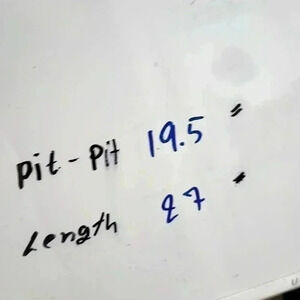 pit - pit 19.5 "
Length 27 "